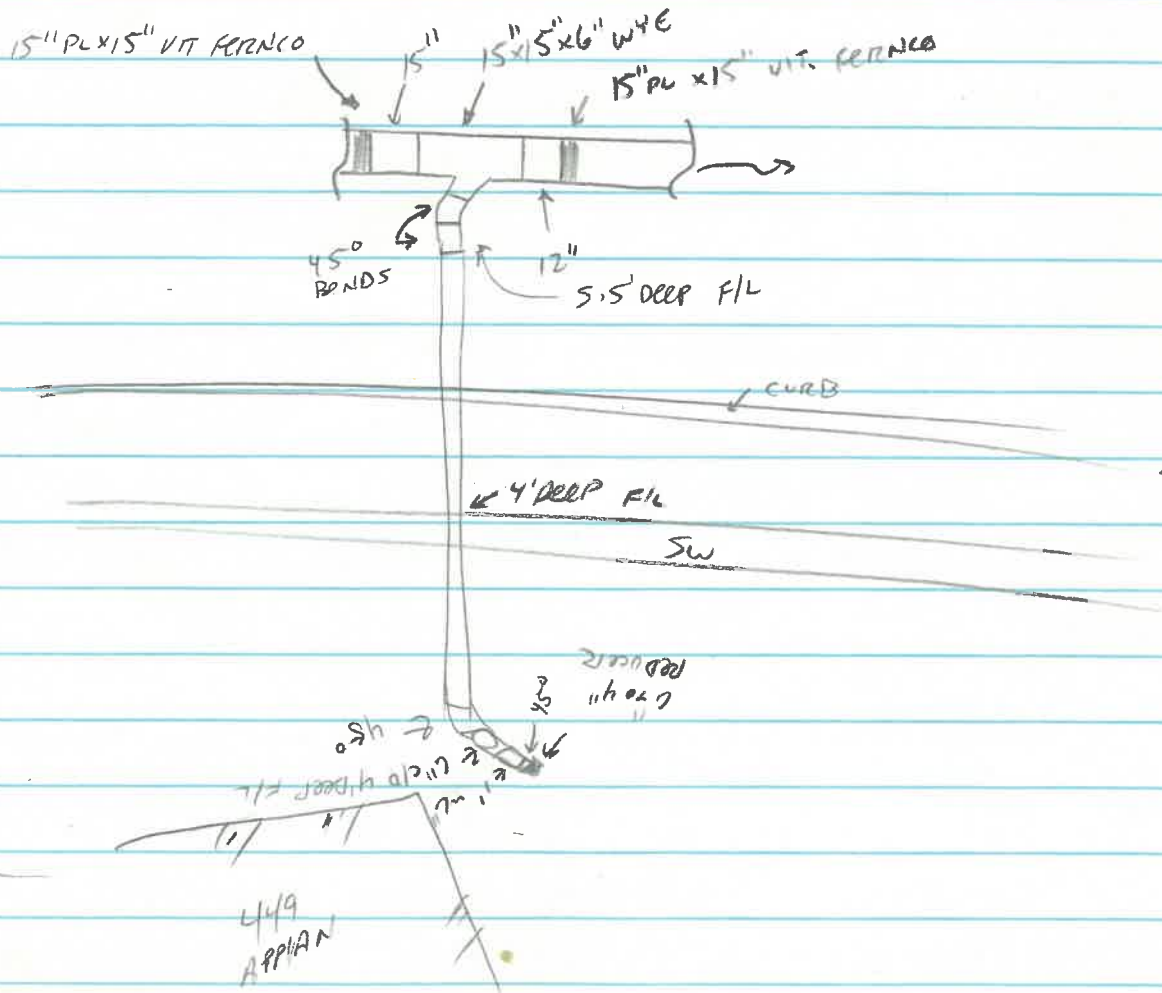 15" PL X 15" VIT FERNCO
15"
15"x15"x6" WYE
15" PL x 15" VIT. FERNCO
45°
BENDS
12"
5.5' DEEP F/L
CURB
4' DEEP F/L
SW
6" TO 4"
REDUCER
45°
6" C/O 4' DEEP F/L
449
APPIAN